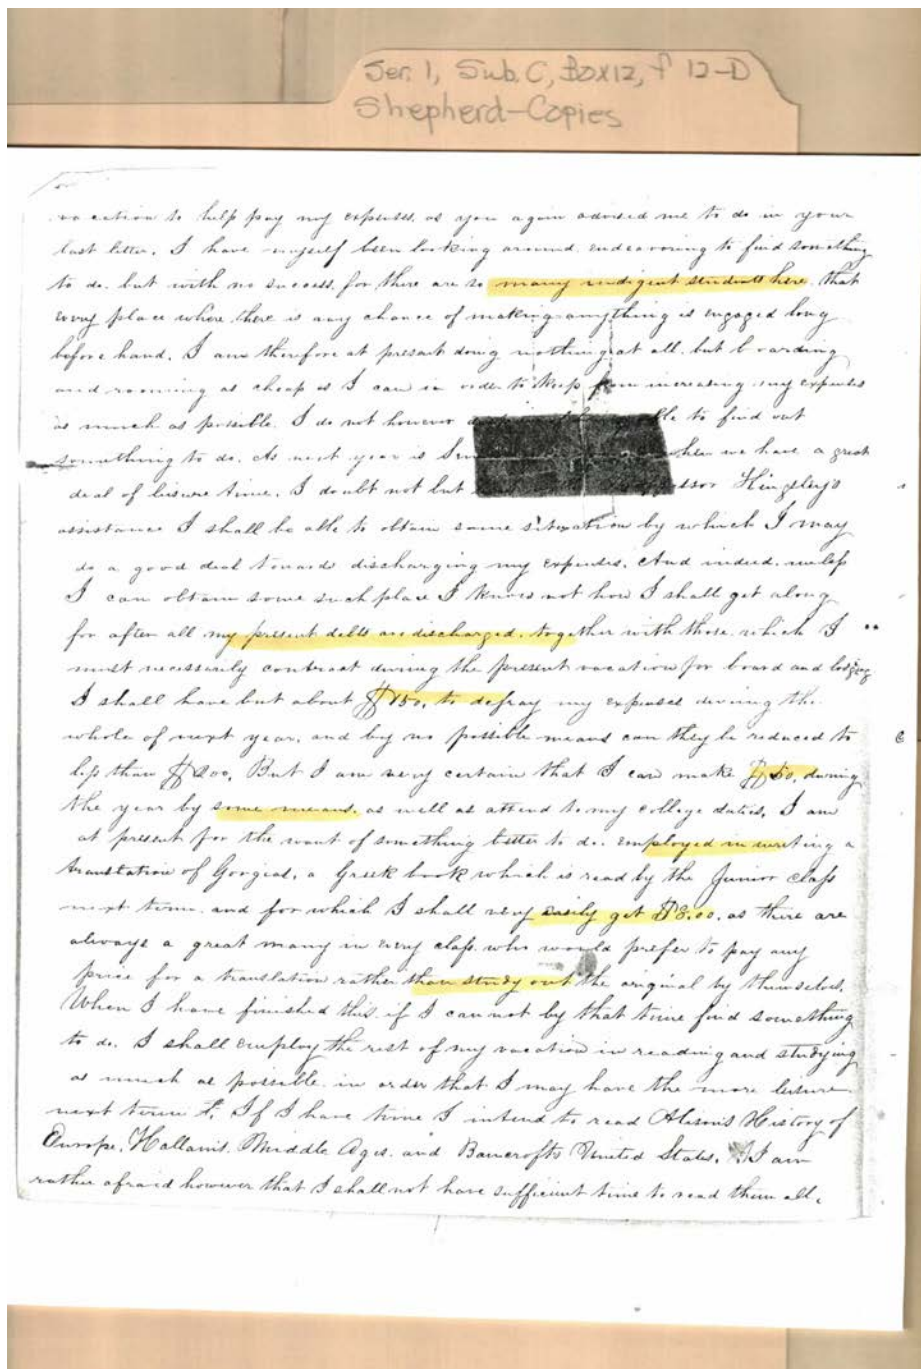 Ser. 1, Sub. C, Box 12, f 12-D
Shepherd-Copies
vacation to help pay my expenses, as you again advised me to do in your
last letter. I have myself been looking around endeavoring to find something
to do, but with no success, for there are so many indigent students here that
every place where there is any chance of making anything is engaged long
before hand. I am therefore at present doing nothing at all, but boarding
and rooming as cheap as I can in order to keep from increasing my expenses
as much as possible. I do not however to find out
something to do. As next year is when we have a great
deal of leisure time, I doubt not but Kingsley's
assistance I shall be able to obtain some situation by which I may
do a good deal towards discharging my expenses. And indeed, unless
I can obtain some such place I know not how I shall get along
for after all my present debts are discharged, together with those which I
must necessarily contract during the present vacation for board and lodging
I shall have but about $150, to defray my expenses during the
whole of next year, and by no possible means can they be reduced to
less than $200. But I am very certain that I can make $50, during
the year by some means, as well as attend to my college duties. I am
at present for the want of something better to do, employed in writing a
translation of Gorgias, a Greek book which is read by the Junior class
next term, and for which I shall very easily get $8.00, as there are
always a great many in every class who would prefer to pay any
price for a translation rather than study out the original by themselves.
When I have finished this, if I cannot by that time find something
to do, I shall employ the rest of my vacation in reading and studying
as much as possible, in order that I may have the more leisure
next term. If I have time I intend to read Alison's History of
Europe, Hallam's Middle Ages, and Bancroft's United States. I am
rather afraid however that I shall not have sufficient time to read them all.